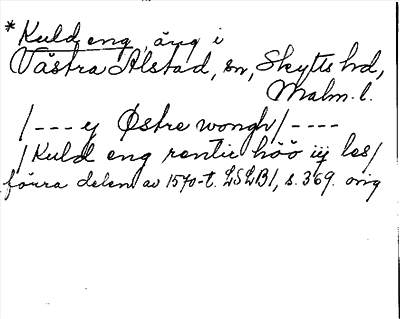 *Kuld eng, äng i
Västra Alstad, sn, Skytts hd,
Malm. l.
/--- ej Østre wongh/----
/Kuld eng rentie höö iij les/
förra delen av 1570-t. LSLB1, s. 369. orig